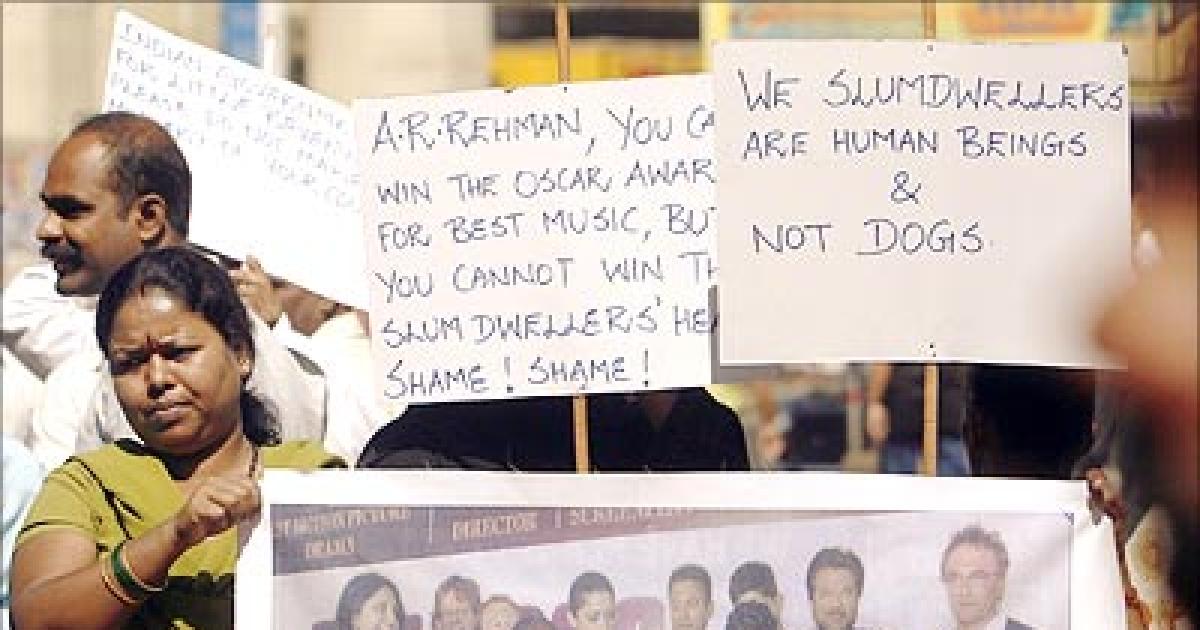 INDIAN
FOR LITTLE
PLEASE DO NOT
A.R.REHMAN, YOU CA
WIN THE OSCAR AWAR
FOR BEST MUSIC, BUT
YOU CANNOT WIN TH
SLUM DWELLERS' HEA
SHAME! SHAME!
WE SLUMDWELLERS
ARE HUMAN BEINGS
&
NOT DOGS.
MOTION PICTURE
DRAMA
DIRECTOR